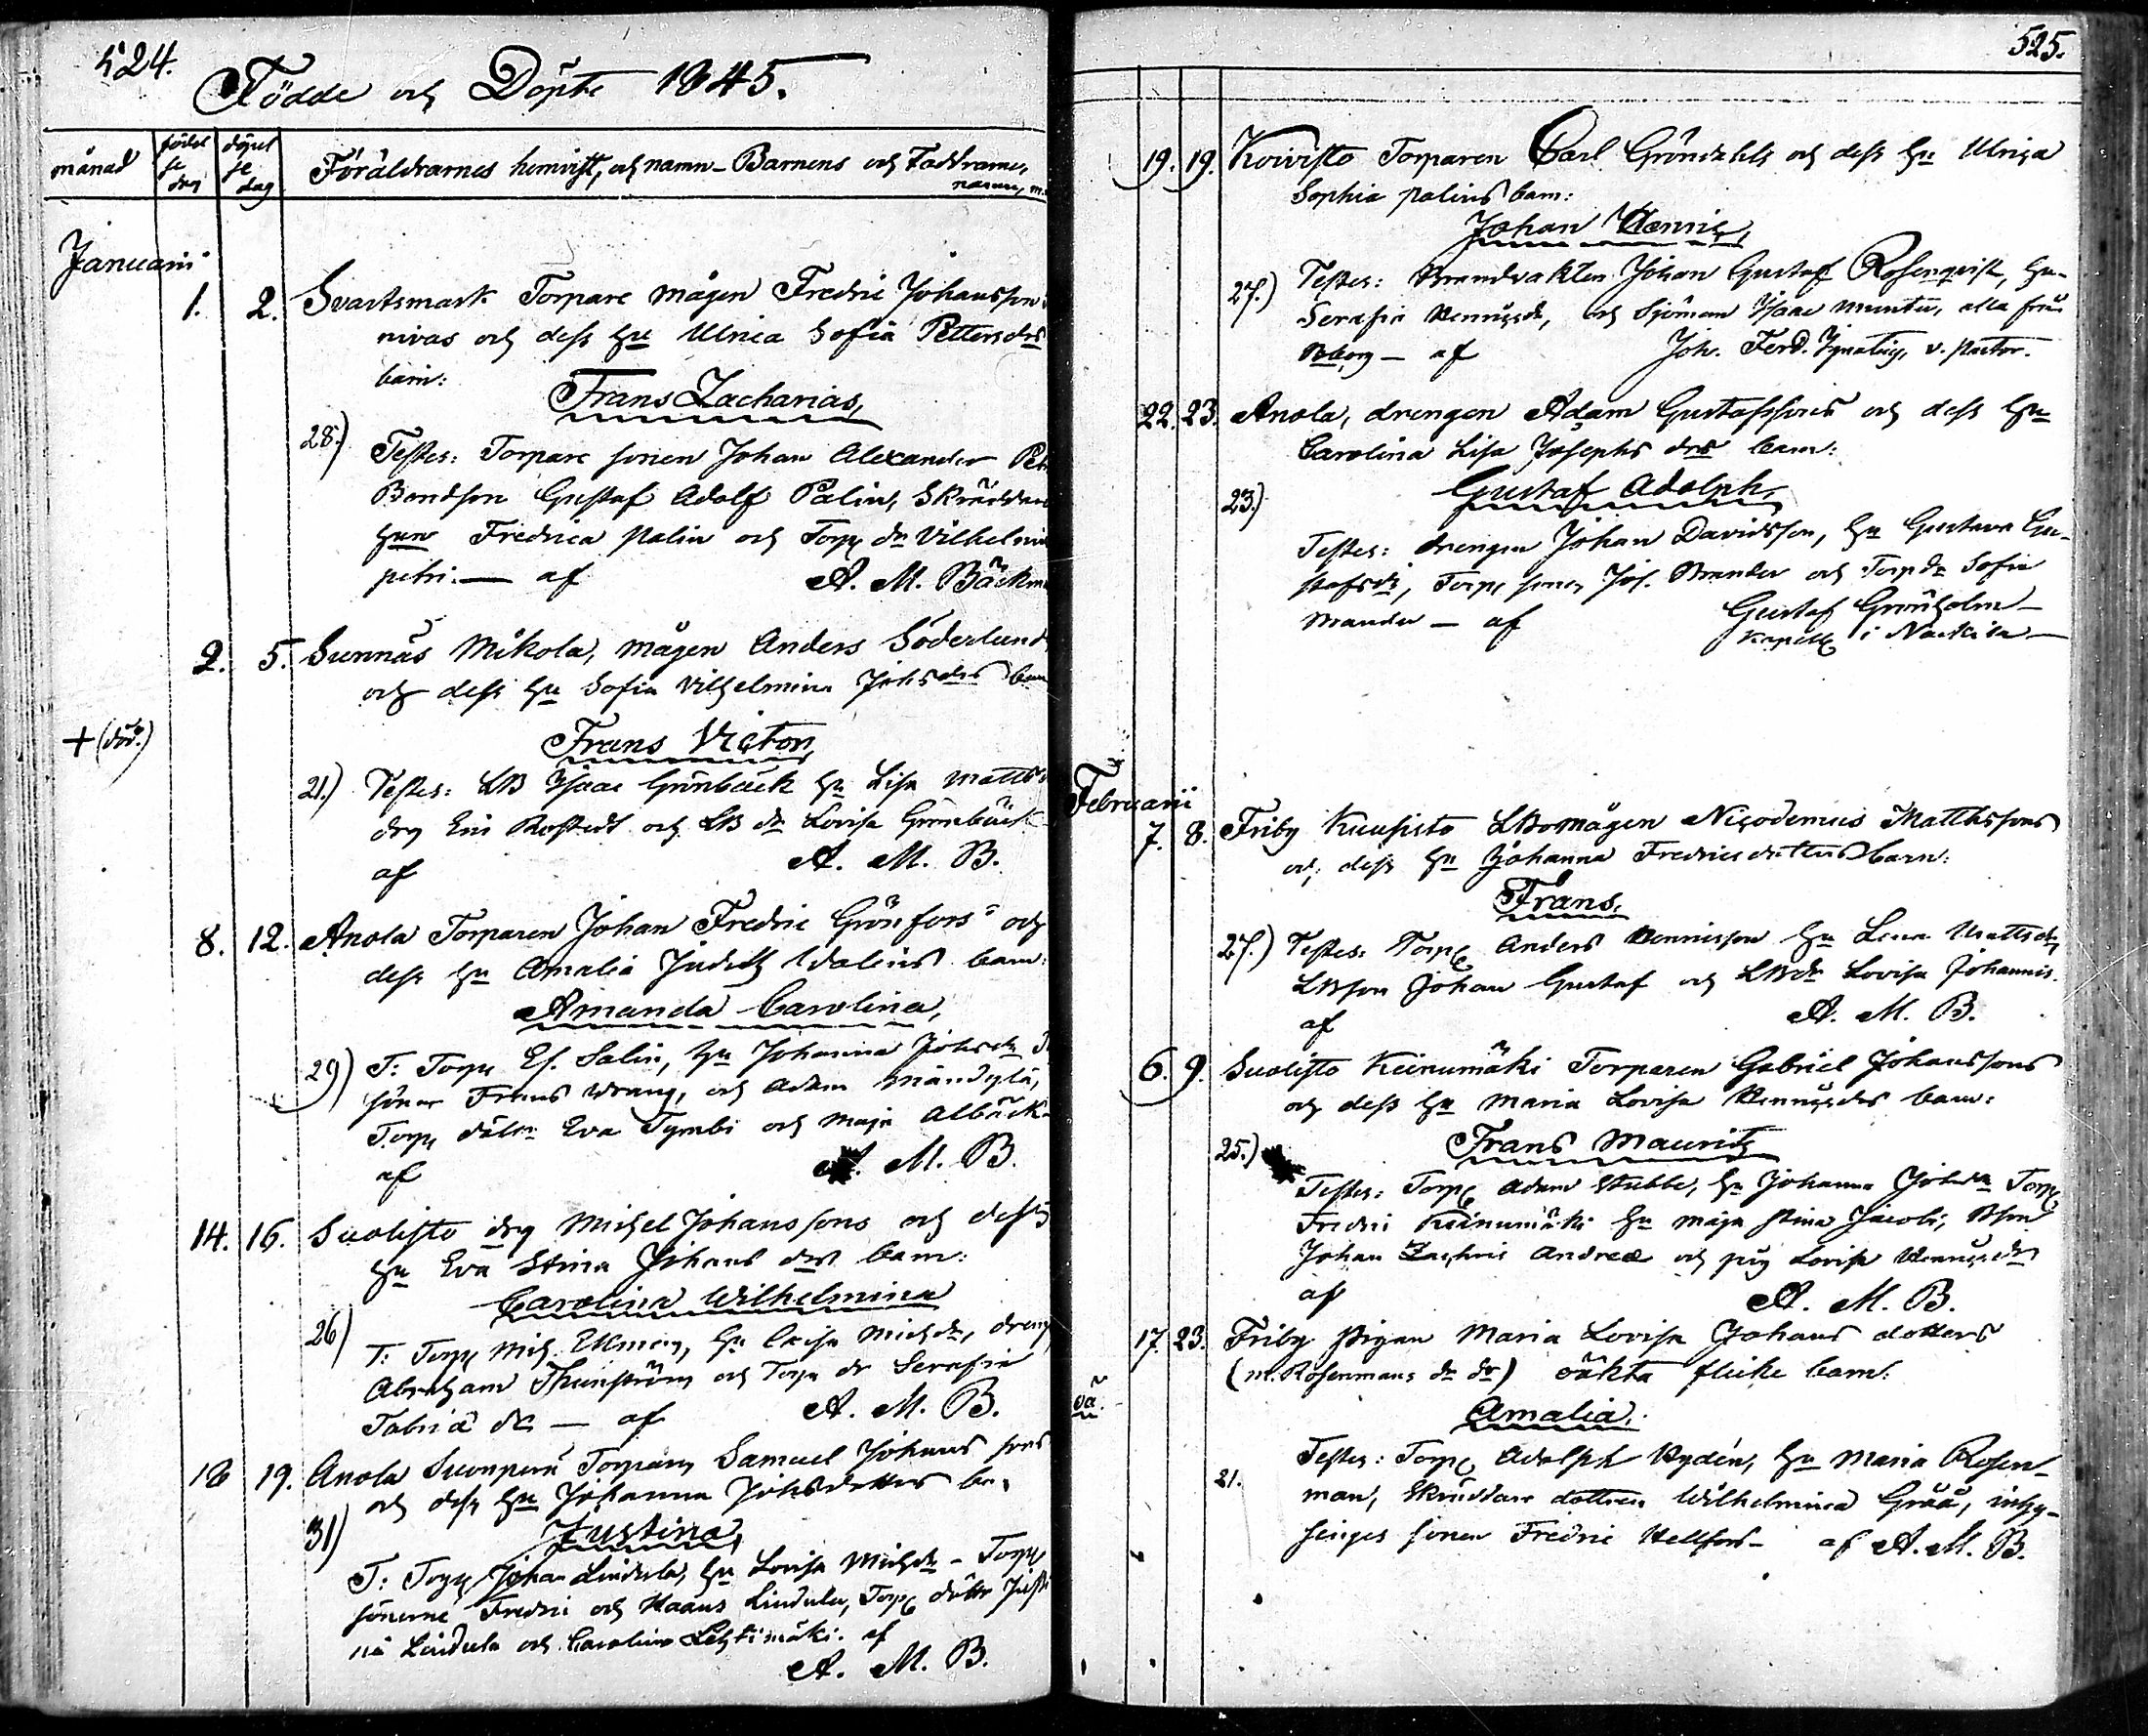 524.
Födde och Döpte 1845.
månad
födel se dag
döpel se dag
Föräldrarnes hemvist, och namn - Barnens och Faddrarnes namn, m.
Januarii
1. 2. Svartsmark Torpare mågen Fredric Johansson
nivas och dess Hu Ulrica Sofia Petters drs
barn:
Frans Zacharias,
28.) Testes: Torpare sonen Johan Alexander Pet
Bondson Gustaf Adolf Palin, Skräddare
Hun Fredrica Palin och Torp dr Vilhelmina
petri. — af A. M. Bäckm
2. 5. Sunnäs Mikola, mågen Anders Söderlund
och dess Hu Sofia Vilhelmina Johs drs barn
+ (död.)
Frans Victor,
21.) Testes: LB Isaac Grönbäck Hu Lisa Matts
drg Eric Rostedt och LB dr Lovisa Grönbäck
af A. M. B.
8. 12. Anola Torparen Johan Fredric Grönfors och
dess Hu Amalia Judith Walens barn:
Amanda Carolina,
29) T: Torp Ef. Salin, Hu Johanna Johs dr
söner Frans Wrang, och Adam Mändylä,
Torp döttr Eva Tymbi och Maja Albäck
af A. M. B.
14. 16. Suolisto drg Michel Johanssons och dess
Hu Eva Stina Johans drs barn:
Carolina Wilhelmina
26) T: Torp Mich. Hu Caisa Michdr, dreng
Abraham Thunström och Torp dr Serafia
Tobiä dr — af A. M. B.
18 19. Anola Suonperä Torparen Samuel Johans sons
och dess Hu Johanna Johsdotters ba.
31) Justina,
T: Torp Johan Lindula, Hu Lovisa Michdr - Torp
sönerne Fredric och Maäns Lindula, Torp döttr Justi
na Lindula och Carolina Lehtimäki. af
A. M. B.
525.
19. 19. Koivisto Torparen Carl Gröndahls och dess Hu Ulrica
Sophia Palins barn:
Johan Hennric,
27.) Testes: Brandvakten Johan Gustaf Rosenqvist, Hu
Serafia Henricsdr, och Sjöman Isaac Munter, alla från
Bborg — af Joh. Ferd. Ignatius, v. pastor.
22. 23. Anola, drengen Adam Gustafssons och dess Hu
Carolina Lisa Josephs drs barn:
23.) Gustaf Adolph,
Testes: drengen Johan Davidsson, Hu Gustava Gu-
stafsdr, Torp sonen Jos. Brander och Torp dr Sofia
Brander — af Gustaf Grönholm
Kapell i Nackila
Februarii
7. 8. Friby Kuusisto LBomågen Nicodemus Matthssons
och dess Hu Johanna Fredricsdotters barn:
Frans,
27.) Testes: Torp Anders Henricsson Hu Lena Mattsdr,
LBson Johan Gustaf och LBdr Lovisa Johannis.
af A. M. B.
6. 9. Suolisto Keinumäki Torparen Gabriel Johanssons
och dess Hu Maria Lovisa Henricsdrs barn:
25.) Frans Mauritz
Testes: Torp Adam Stubbe, Hu Johanna Johsdr Torp
Fredric Keinumäki Hu Maja Stina Jacobi, Bson
Johan Zachris Andreæ och pig Lovisa Henricsdr
af A. M. B.
17. 23. Friby Pigan Maria Lovisa Johans dotters
(m. Rosenmans dr dr) oäkta flicke barn:
oä.
Amalia,
21. Testes: Torp Adolph Rydén, Hu Maria Rosen-
man, Skräddare dottren Wilhelmina Gråå, inhy-
singes sonen Fredric Hellfors — af A. M. B.